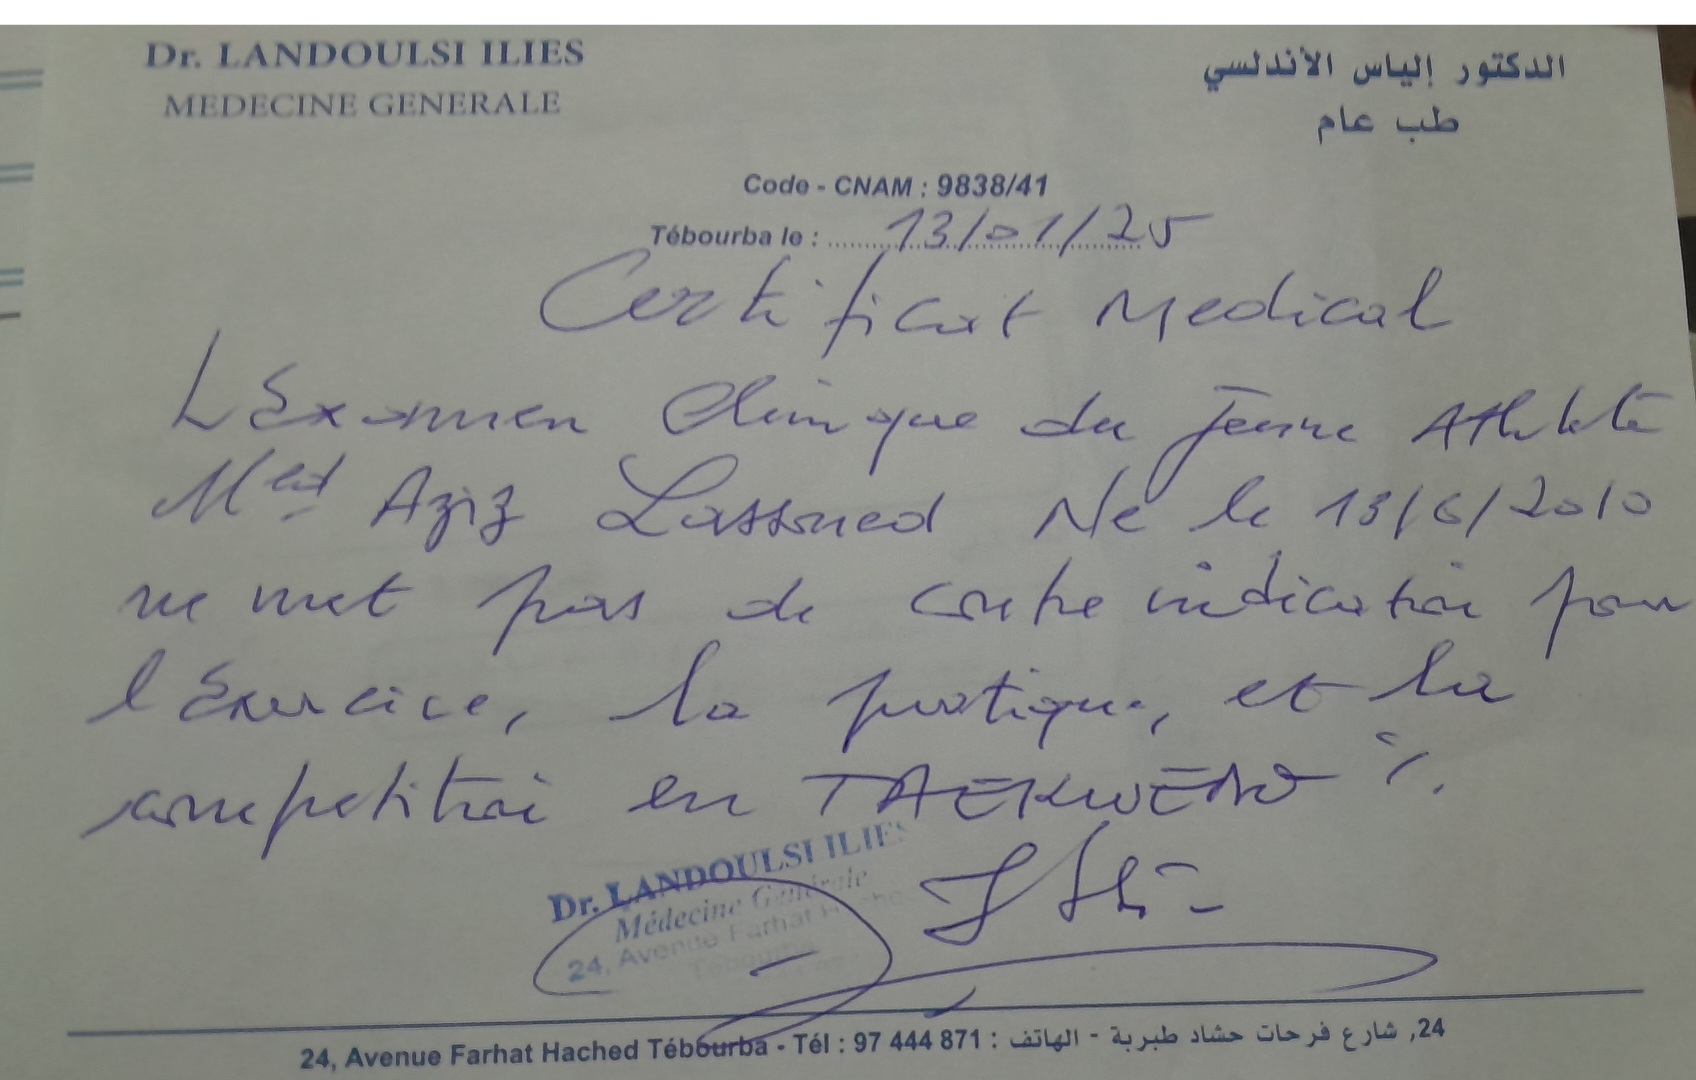 Dr. LANDOULSI ILIES
MEDECINE GENERALE
الدكتور إلياس الأندلسي
طب عام
Code - CNAM : 9838/41
Tébourba le : 13/01/25
Certificat Medical
L'Examen Clinique du jeune Athlète
Med Aziz Lassoued Né le 13/6/2010
ne met pas de contre indication pour
l'Exercice, la pratique, et la
competition en TAEKWENDO %.
Dr. LANDOULSI ILIES
Médecine Générale
24, Avenue Farhat Hached
Tébourba
24, Avenue Farhat Hached Tébourba - Tél : 97 444 871 : 24, شارع فرحات حشاد طبربة - الهاتف